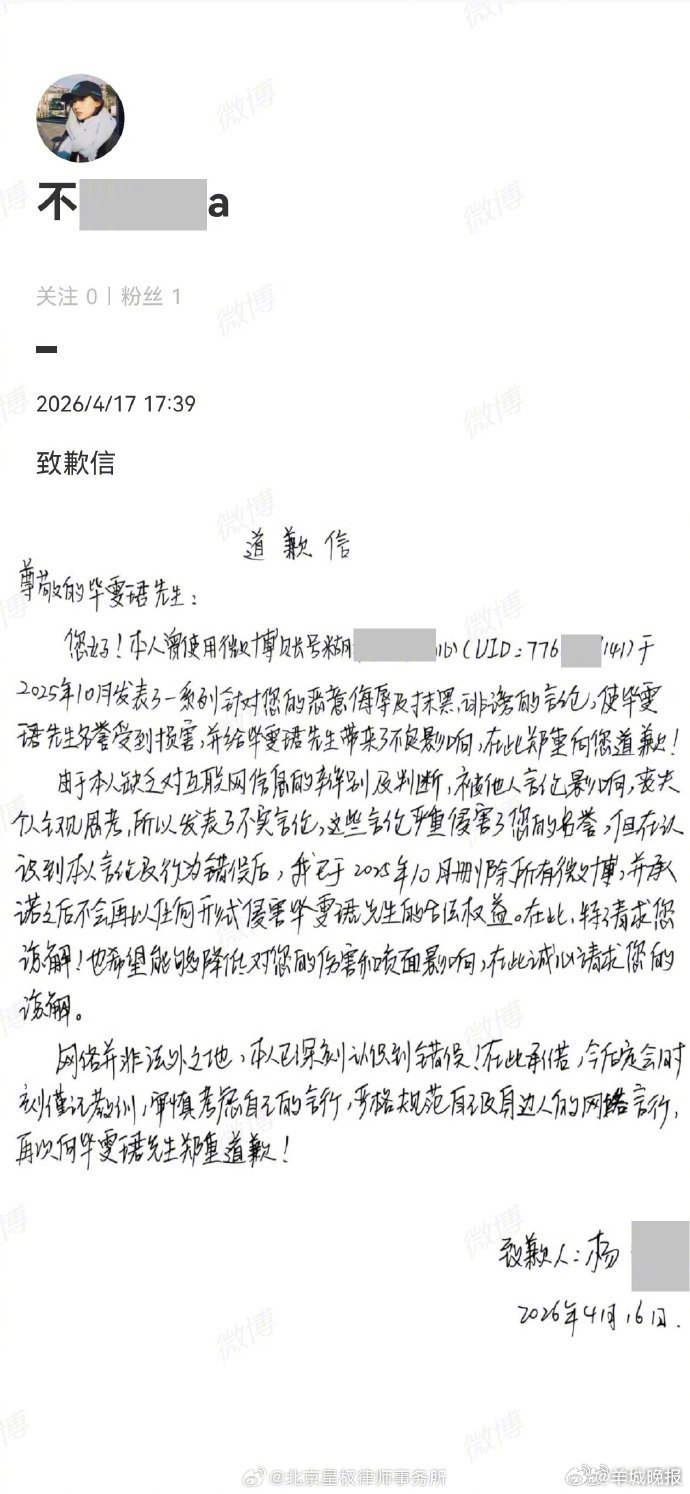 不 a
关注 0 | 粉丝 1
2026/4/17 17:39
致歉信
道歉信
尊敬的毕雯珺先生：
您好！本人曾使用微博账号糊 (UID：776 141)于
2025年10月发表了一系列针对您的恶意侮辱及抹黑、诽谤的言论，使毕雯
珺先生名誉受到损害，并给毕雯珺先生带来了不良影响，在此郑重向您道歉！
由于本人缺乏对互联网信息的辨别及判断，被他人言论影响，丧失
个人客观思考，所以发表了不实言论，这些言论严重侵害了您的名誉，但在认
识到本人言论及行为错误后，我已于2025年10月删除所有微博，并承
诺之后不会再以任何形式侵害毕雯珺先生的合法权益。在此，特请求您
谅解！也希望能够降低对您的伤害和负面影响，在此诚心请求您的
谅解。
网络并非法外之地，本人已深刻认识到错误！在此承诺，今后定会时
刻谨记教训，审慎考虑自己的言行，严格规范自己及身边人的网络言行，
再次向毕雯珺先生郑重道歉！
致歉人：杨
2026年4月16日.
@北京星权律师事务所
@羊城晚报
微博